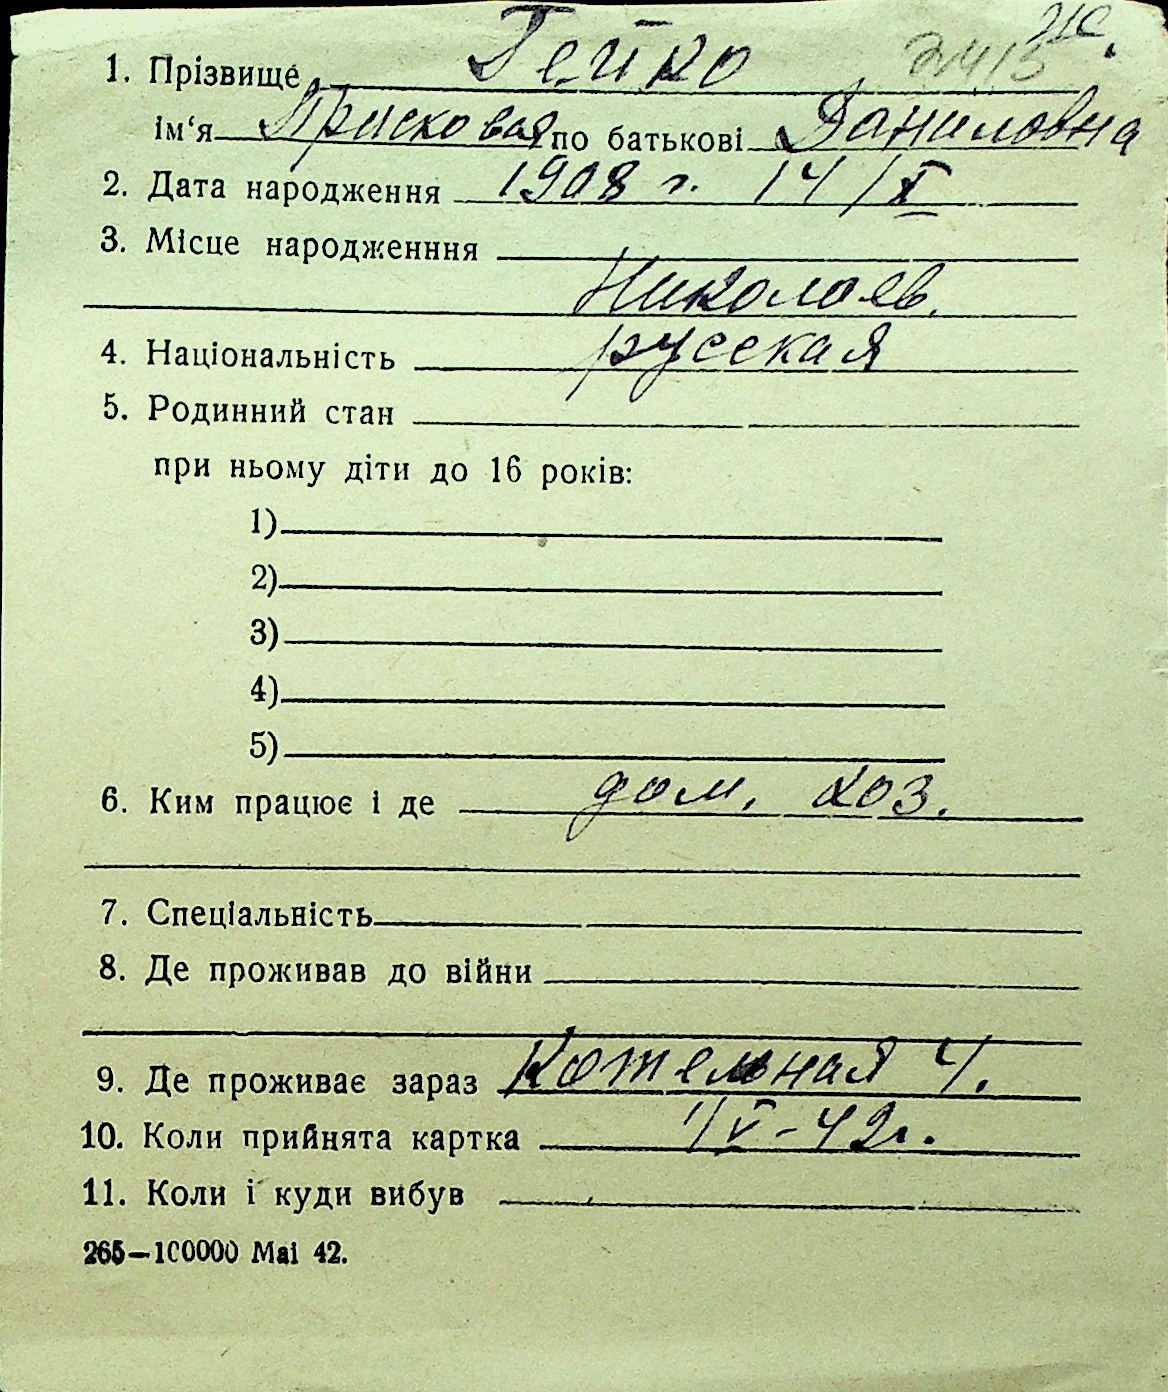 1. Прізвище Гейко
ім‘я Присковая по батькові Даниловна
2. Дата народження 1908 г. 14/X
3. Місце народженння
Николаев.
4. Національність русская
5. Родинний стан
при ньому діти до 16 років:
1)
2)
3)
4)
5)
6. Ким працює і де дом. хоз.
7. Спеціальність
8. Де проживав до війни
9. Де проживає зараз Котельная 4.
10. Коли прийнята картка 1/V-42г.
11. Коли і куди вибув
265—100000 Mai 42.